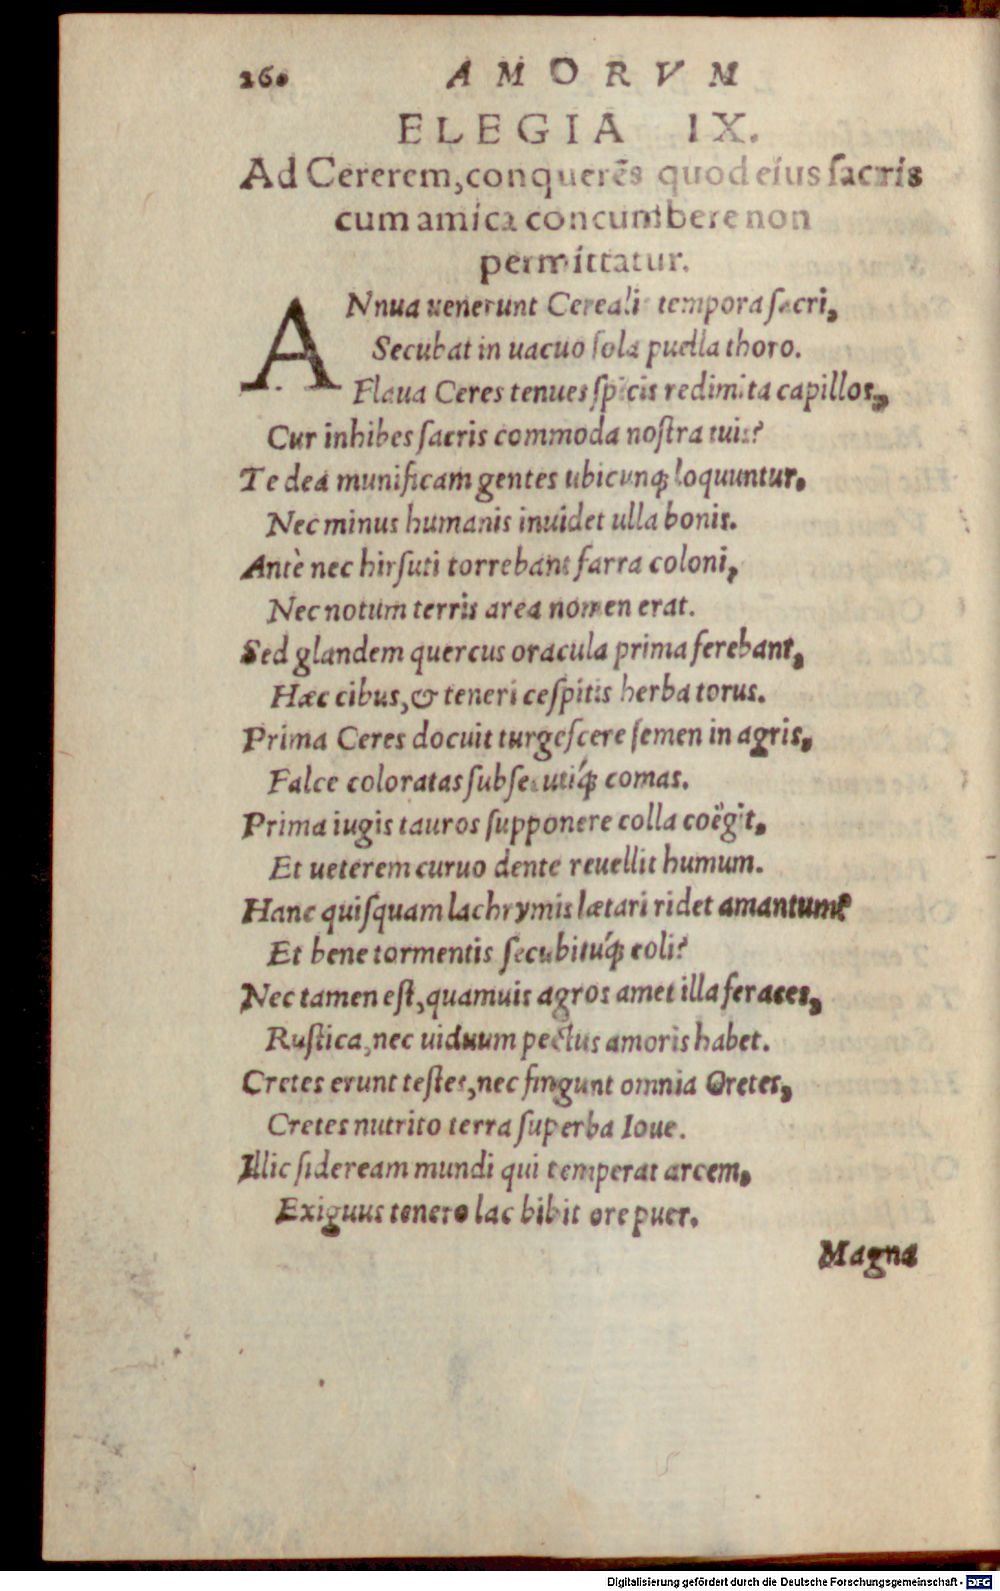 260 AMORVM
ELEGIA IX.
Ad Cererem, conquerẽs quod eius ſacris
cum amica concumbere non
permittatur.
ANnua uenerunt Cerealis tempora ſacri,
Secubat in uacuo ſola puella thoro.
Flaua Ceres tenues ſpicis redimita capillos,
Cur inhibes ſacris commoda noſtra tuis?
Te dea munificam gentes ubicunqꝫ loquuntur,
Nec minus humanis inuidet ulla bonis.
Antè nec hirſuti torrebant farra coloni,
Nec notum terris area nomen erat.
Sed glandem quercus oracula prima ferebant,
Hæc cibus, & teneri ceſpitis herba torus.
Prima Ceres docuit turgeſcere ſemen in agris,
Falce coloratas ſubſecutíqꝫ comas.
Prima iugis tauros ſupponere colla coëgit,
Et ueterem curuo dente reuellit humum.
Hanc quiſquam lachrymis lætari ridet amantum?
Et bene tormentis ſecubitúqꝫ coli?
Nec tamen eſt, quamuis agros amet illa feraces,
Ruſtica, nec uiduum pectus amoris habet.
Cretes erunt teſtes, nec fingunt omnia Cretes,
Cretes nutrito terra ſuperba Ioue.
Illic ſideream mundi qui temperat arcem,
Exiguus tenero lac bibit ore puer.
Magna
Digitalisierung gefördert durch die Deutsche Forschungsgemeinschaft - DFG